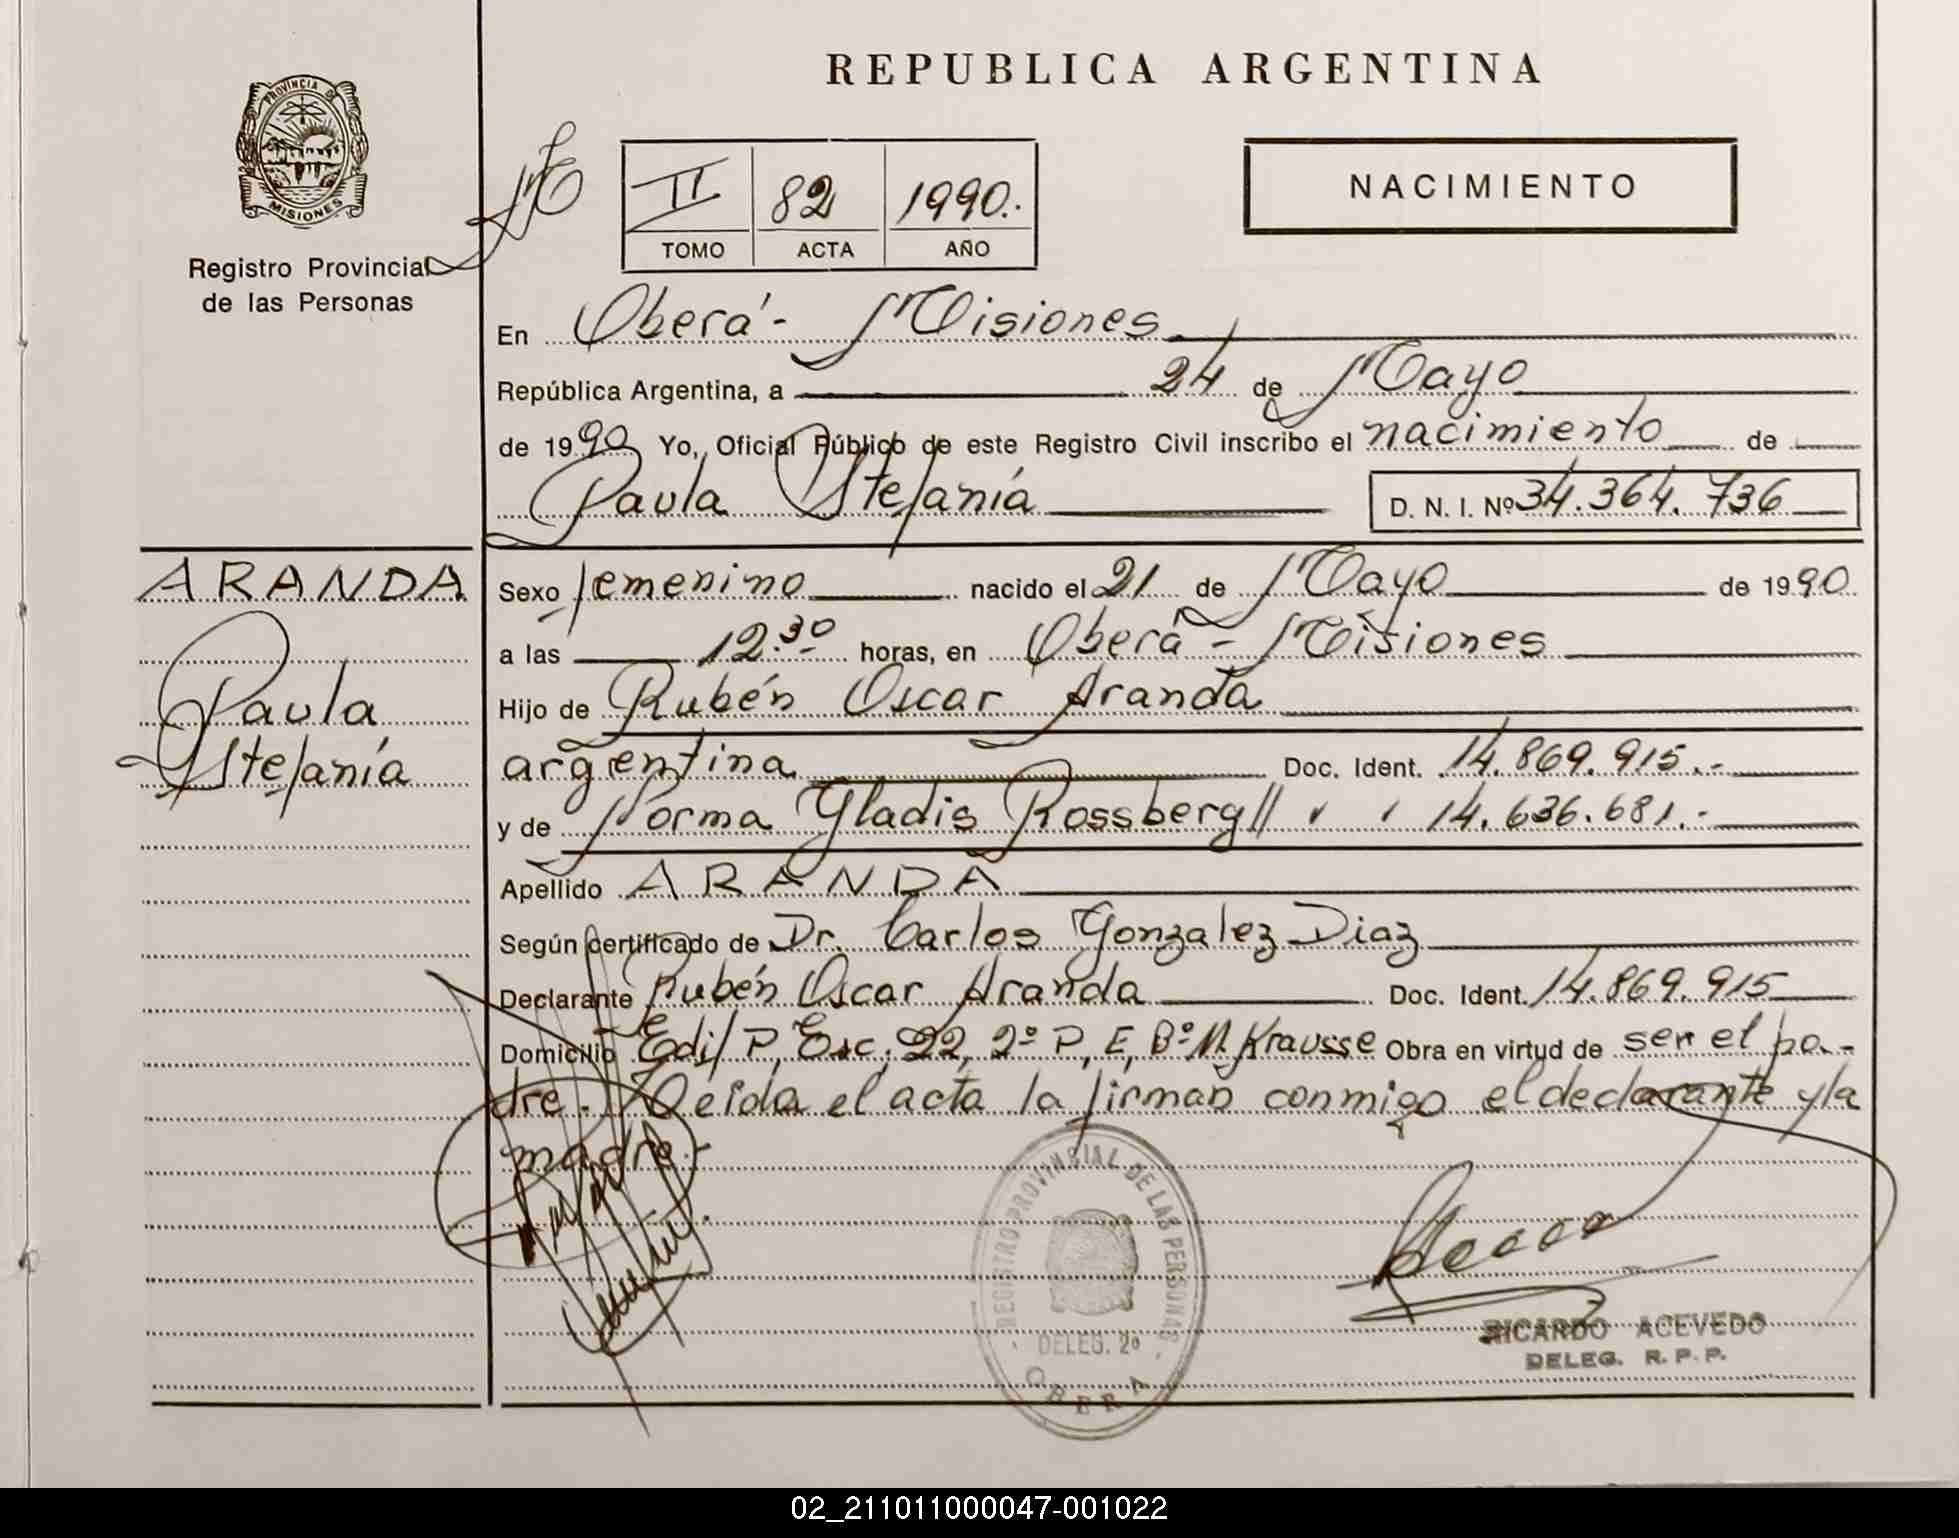 REPUBLICA ARGENTINA
PROVINCIA DE
MISIONES
Registro Provincial
de las Personas
II 82 1990.
TOMO ACTA AÑO
NACIMIENTO
En Oberá - Misiones
República Argentina, a 24 de Mayo
de 1990 Yo, Oficial Público de este Registro Civil inscribo el nacimiento de
Paula Estefanía D. N. I. Nº 34.364.736
ARANDA
Paula
Estefanía
Sexo femenino nacido el 21 de Mayo de 1990
a las 12.30 horas, en Oberá - Misiones
Hijo de Rubén Oscar Aranda
argentina Doc. Ident. 14.869.915.-
y de Norma Gladis Rossberg // " " 14.636.681.-
Apellido ARANDA
Según certificado de Dr. Carlos Gonzalez Diaz
Declarante Rubén Oscar Aranda Doc. Ident. 14.869.915
Domicilio Edif P, Esc. 22, 2º P, E, Bº M. Krausse Obra en virtud de ser el pa-
dre. Leída el acta la firman conmigo el declarante y la
madre.-
REGISTRO PROVINCIAL DE LAS PERSONAS
DELEG. 2º
OBERA
RICARDO ACEVEDO
DELEG. R. P. P.
02_211011000047-001022